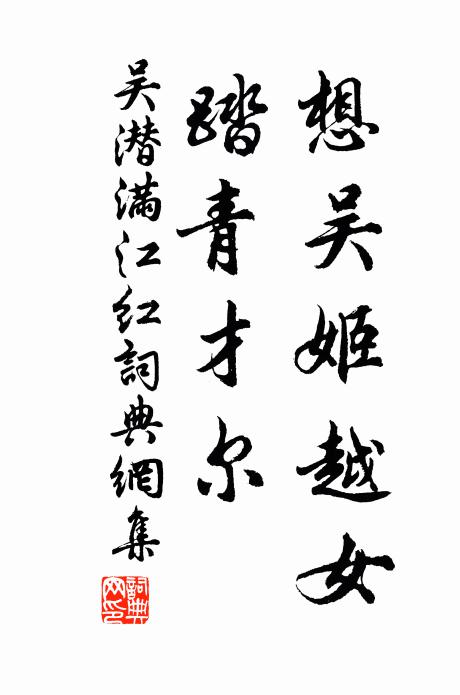 想吴姬越女
踏青才尔
吴潜满江红词典網集
詞典网印